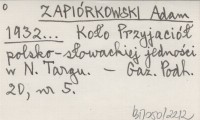 o
ZAPIÓRKOWSKI Adam
1932... Koło Przyjaciół
polsko-słowackiej jedności
w N. Targu. - Gaz. Podh.
20, nr 5.